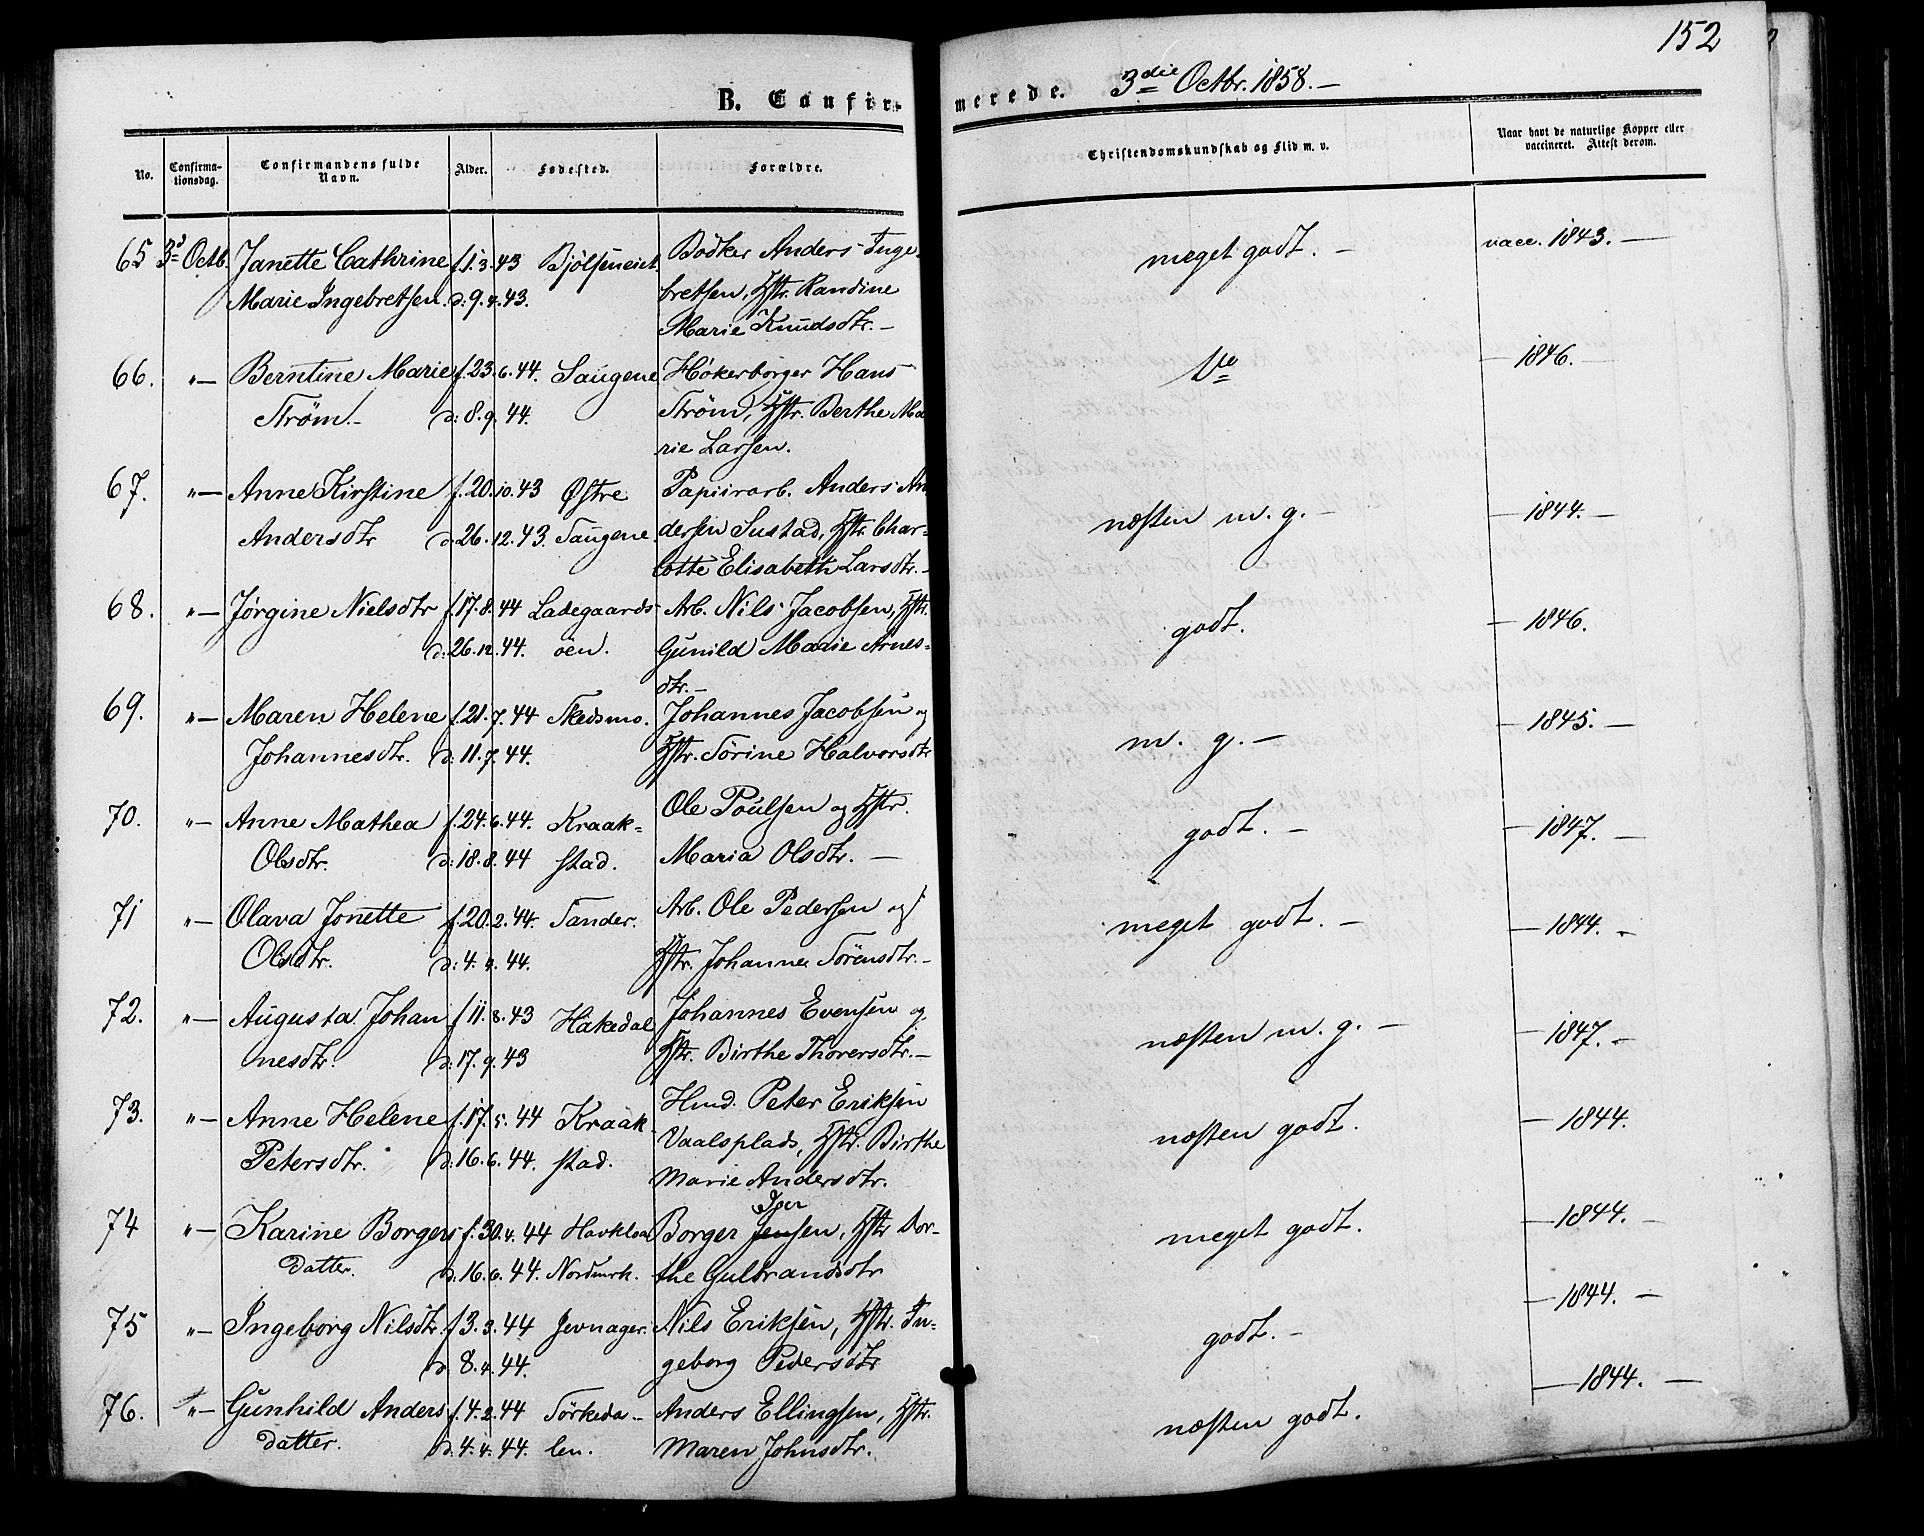 152
B. Confirmerede. 3die Octbr. 1858.
No. Confirmationsdag. Confirmandens fulde Navn. Alder. Fødested. Forældre. Christendomskundskab og Flid m. v. Naar havt de naturlige Kopper eller vaccineret. Attest derom.
65 3d Octb. Janette Cathrine f. 1.3.43 Bjölseneiet Bødker Anders Inge- meget godt. – vacc. 1843. –
Marie Ingebretsen. d: 9.4.43. bretsen, Hstr. Randine
Marie Knudsdtr. –
66. "– Berntine Marie f. 23.6.44. Saugene Høkerborger Hans – 1846. –
Strøm. – d: 8.9.44. Strøm, Hstr. Berthe Ma
rie Larsen.
67. "– Anne Kirstine f. 20.10.43 Østre Papiirarb. Anders An næsten m. g. – – 1844. –
Andersdtr d: 26.12.43. Saugene. dersen Sustad, Hstr. Char-
lotte Elisabeth Larsdtr. –
68. "– Jørgine Nielsdtr f. 17.8.44 Ladegaards- Arb. Nils Jacobsen, Hstr. godt. – 1846.
d: 26.12.44. öen. Gunild Marie Arnes-
dtr. –
69. "– Maren Helene f. 21.7.44 Skedsmo. Johannes Jacobsen og m. g. – – 1845. –
Johannesdtr. d: 11.7.44. Hstr. Sörine Halvorsdtr
70. "– Anne Mathea f. 24.6.44. Kraak- Ole Poulsen og Hstr. godt. – – 1847. –
Olsdtr. d: 18.8.44 stad. Maria Olsdtr. –
71 "– Olava Jonette f. 20.2.44. Sander. Arb. Ole Pedersen og meget godt. – – 1844. –
Olsdtr. d: 4.4.44. Hstr. Johanne Sörensdtr. –
72. "– Augusta Johan f 11.8.43 Hakedal Johannes Evensen og næsten m. g. – – 1847. –
nesdtr. d: 17.9.43 Hstr. Birthe Thorersdtr. –
73. "– Anne Helene f. 17.5.44 Kraak- Hmd. Peter Eriksen næsten godt. – 1844.
Petersdtr. d: 16.6.44. stad. Vaalsplads, Hstr. Birthe
Marie Andersdtr.
74 "– Karine Borgers f. 30.4.44 Borger Jensen, Hstr Dor- meget godt. – 1844. –
datter. d: 16.6.44. Nordmrk. the Gulbrandsdtr
75 "– Ingeborg Nilsdtr. f 3.3.44 Jevnager. Nils Eriksen, Hstr. In- godt. – – 1844. –
d 8.4.44. geborg Pedersdtr
76. "– Gunhild Anders f. 4.2.44 Sörkeda- Anders Ellingsen, Hstr. næsten godt. – 1844. –
datter. d: 4.4.44. len. Maren Johnsdtr.